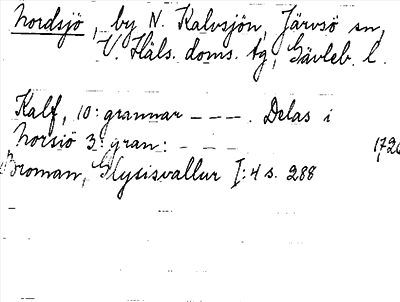 Nordsjö, by N. Kalvsjön, Järvsö sn,
V. Häls. doms. tg, Gävleb. l.
Kalf, 10: grannar - - - . Delas i
Norsiö 3: gran: - - -
Broman, Glysisvallur I: 4 s. 288